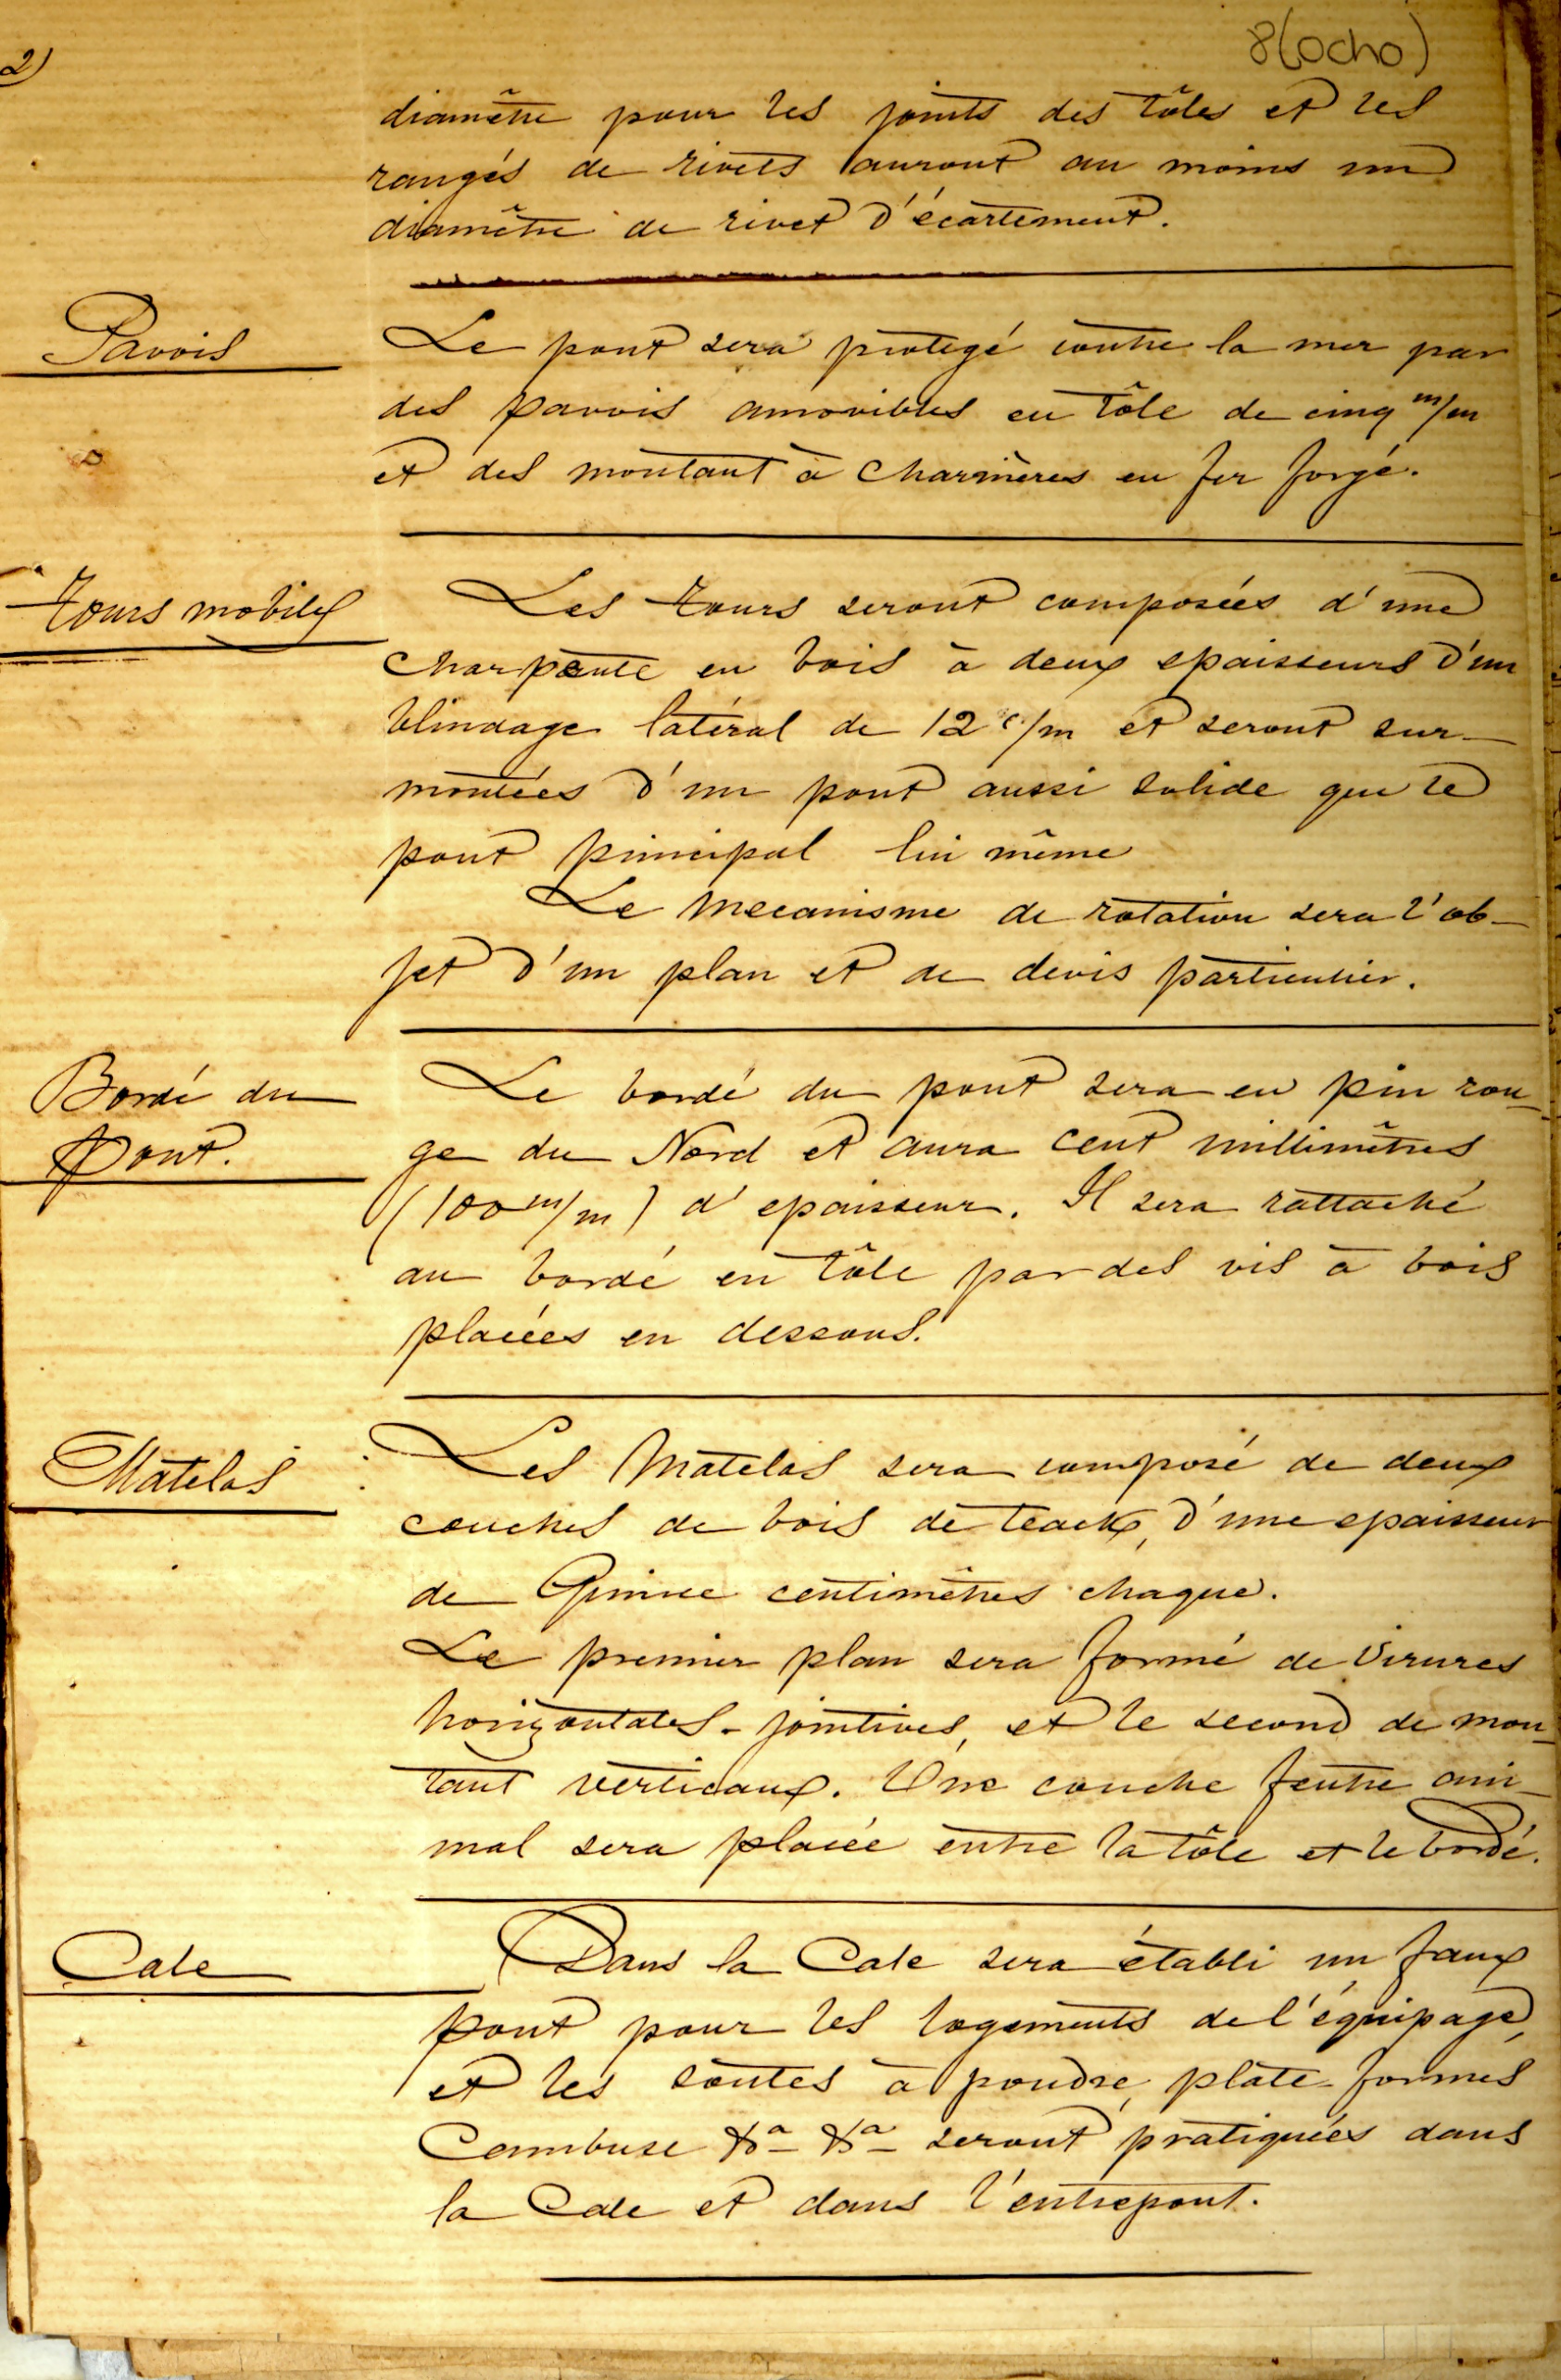 8(ocho)
2)
diamêtre pour les joints des tôles et les
rangés de rivets auront au moins un
diamêtre de rivet d'écartement.
Pavois
Le pont sera protegé contre la mer par
des pavois amovibles en tôle de cinq m/m
et des montant à charnières en fer forgé.
Tours mobiles
Les tours seront composées d'une
charpente en bois à deux epaisseurs d'un
blindage latéral de 12 c/m et seront sur-
montées d'un pont aussi solide que le
pont principal lui même
Le mecanisme de rotation sera l'ob-
jet d'un plan et de devis particulier.
Bordé du
Pont.
Le bordé du pont sera en pin rou-
ge du Nord et aura cent millimêtres
(100 m/m) d'epaisseur. Il sera rattaché
au bordé en tôle par des vis à bois
placées en dessous.
Matelas
Les Matelas sera composé de deux
couches de bois de teack, d'une epaisseur
de Quinze centimêtres chaque.
Le premier plan sera formé de virures
horizontales-jointives, et le second de mon-
tant verticaux. Une couche feutre ani-
mal sera placée entre la tôle et le bordé.
Cale
Dans la Cale sera établi un faux
pont pour les logements de l'équipage,
et les soutes à poudre, plate-formes
Cambuse &a &a seront pratiquées dans
la Cale et dans l'entrepont.